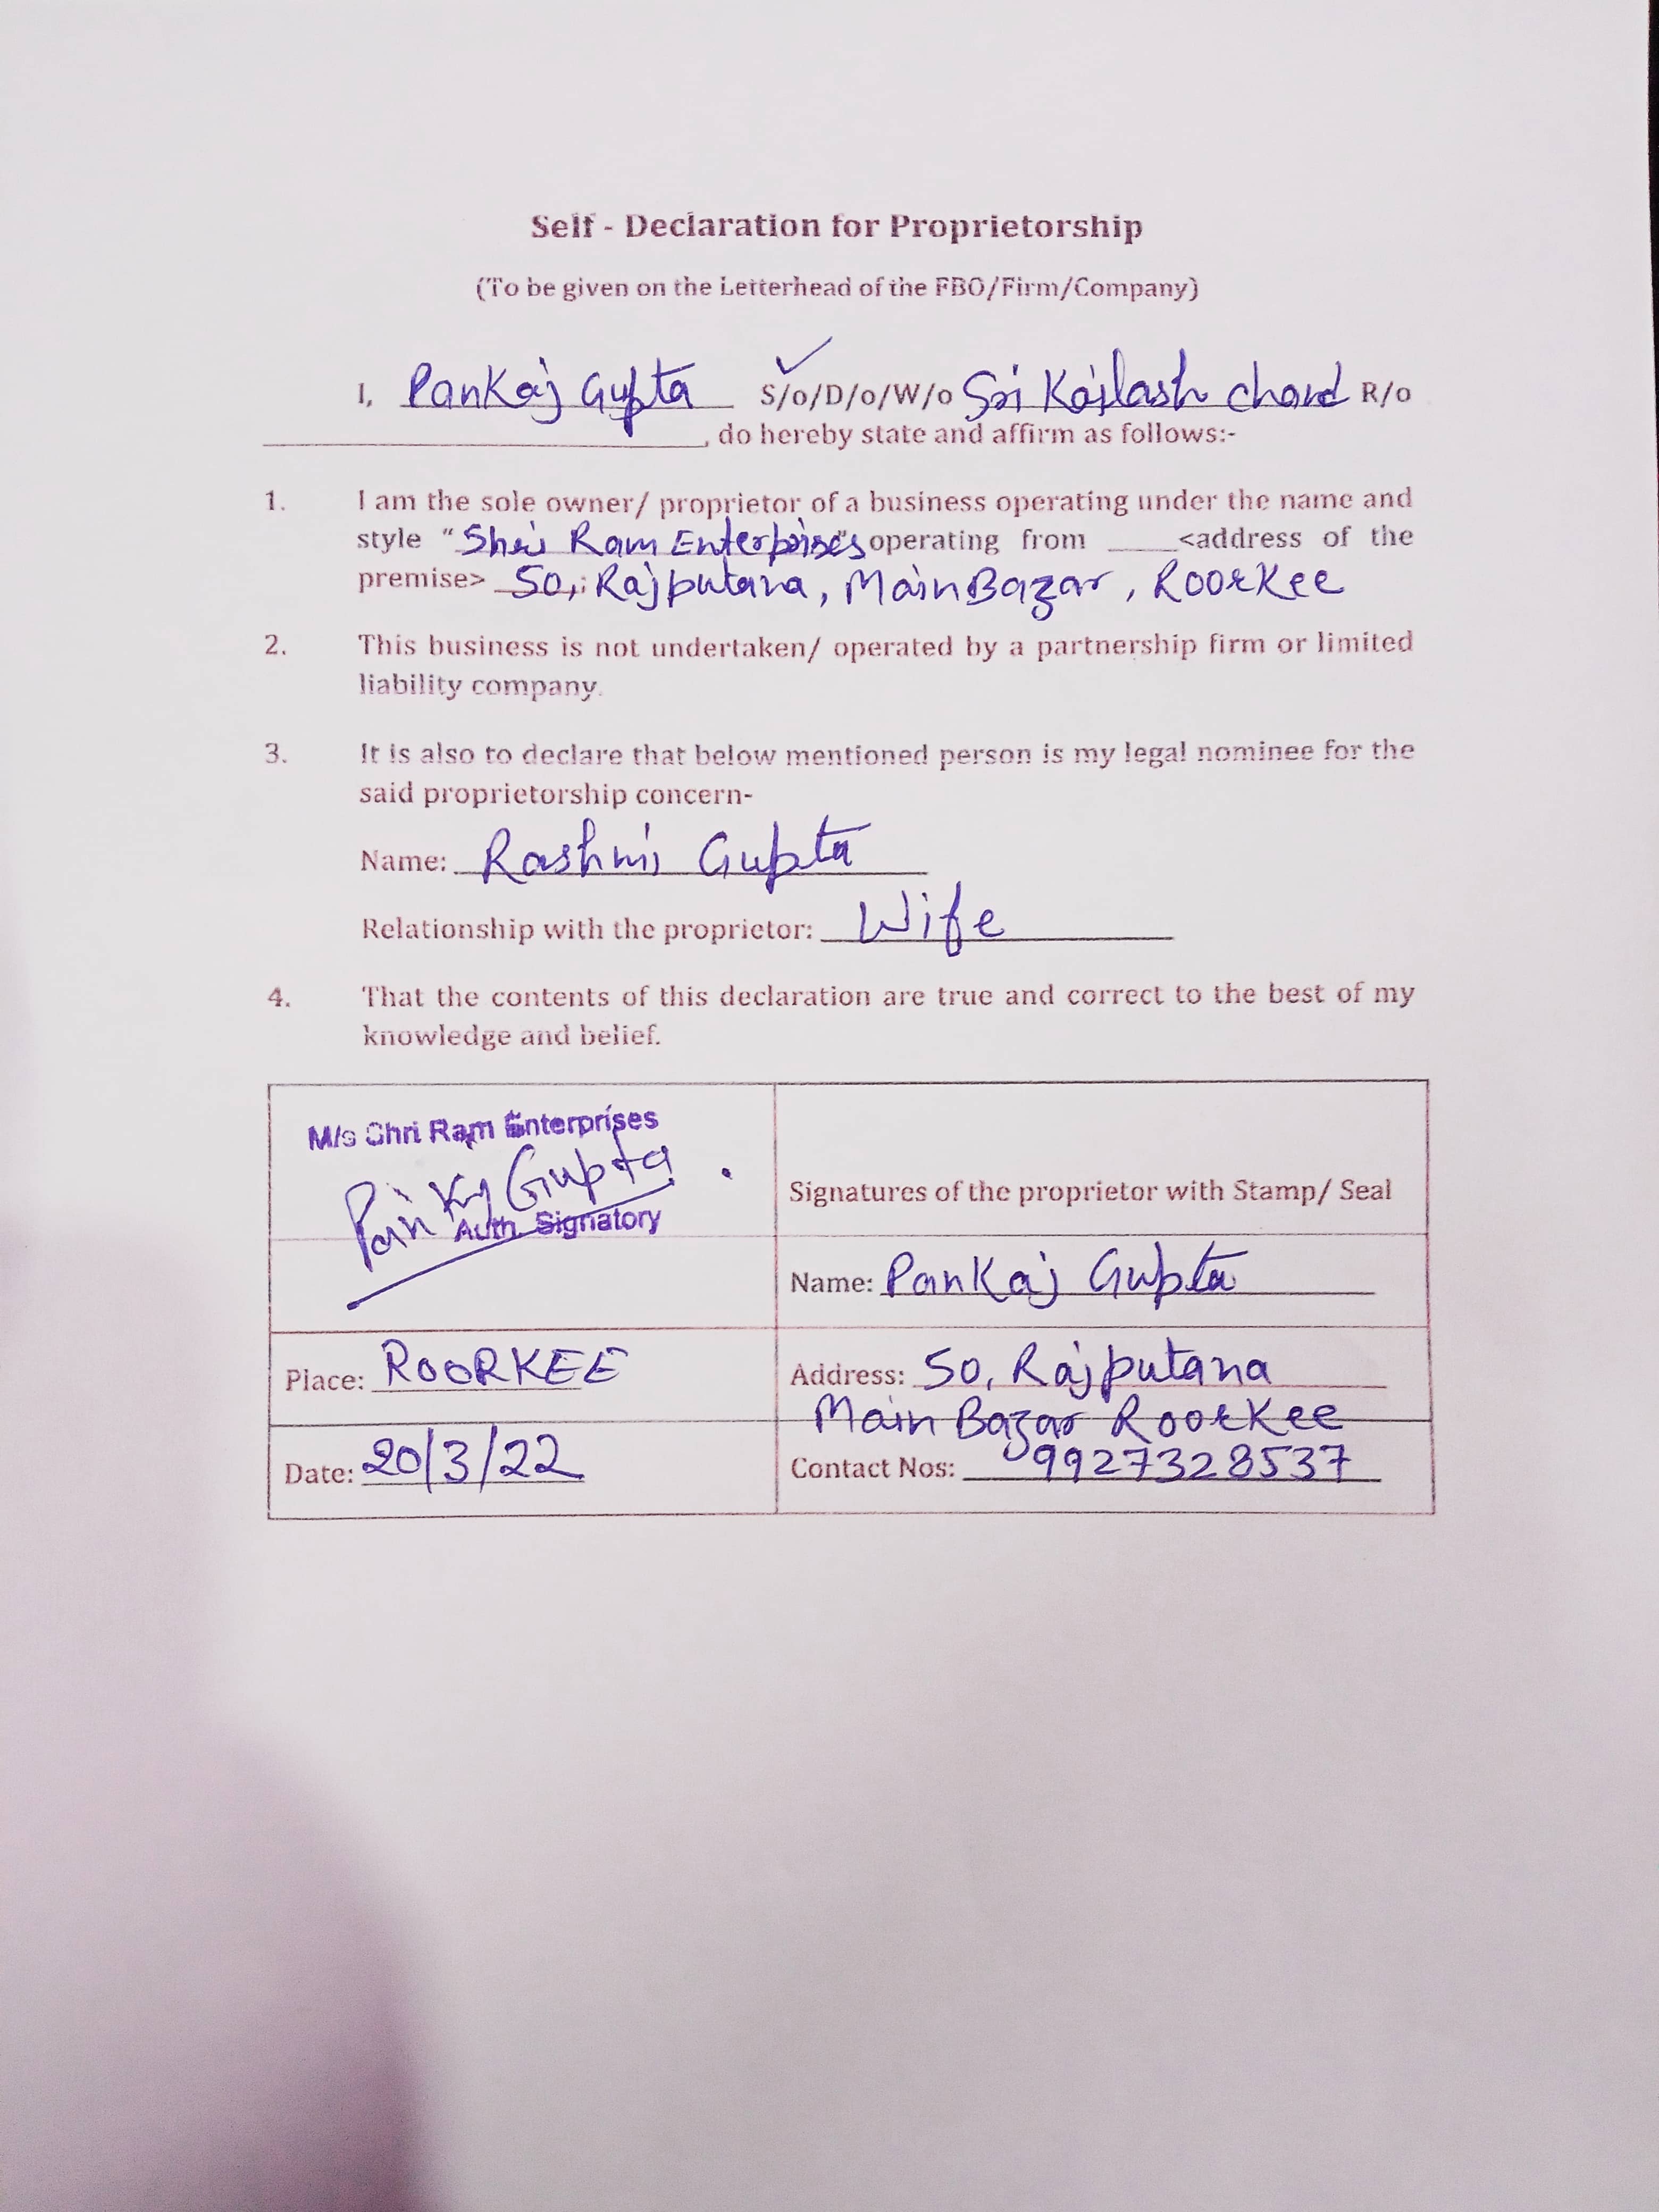 Self - Declaration for Proprietorship
(To be given on the Letterhead of the FBO/Firm/Company)
I, Pankaj Gupta S/o/D/o/W/o Sri Kailash chand R/o
____________________, do hereby state and affirm as follows:-
1. I am the sole owner/ proprietor of a business operating under the name and
style "Shri Ram Enterprises" operating from ____<address of the
premise> 50, Rajputana, Main Bazar, Roorkee
2. This business is not undertaken/ operated by a partnership firm or limited
liability company.
3. It is also to declare that below mentioned person is my legal nominee for the
said proprietorship concern-
Name: Rashmi Gupta
Relationship with the proprietor: Wife
4. That the contents of this declaration are true and correct to the best of my
knowledge and belief.
M/s Shri Ram Enterprises
Pankaj Gupta
Auth. Signatory
Signatures of the proprietor with Stamp/ Seal
Name: Pankaj Gupta
Place: ROORKEE
Address: 50, Rajputana
Main Bazar Roorkee
Date: 20/3/22
Contact Nos: 9927328537